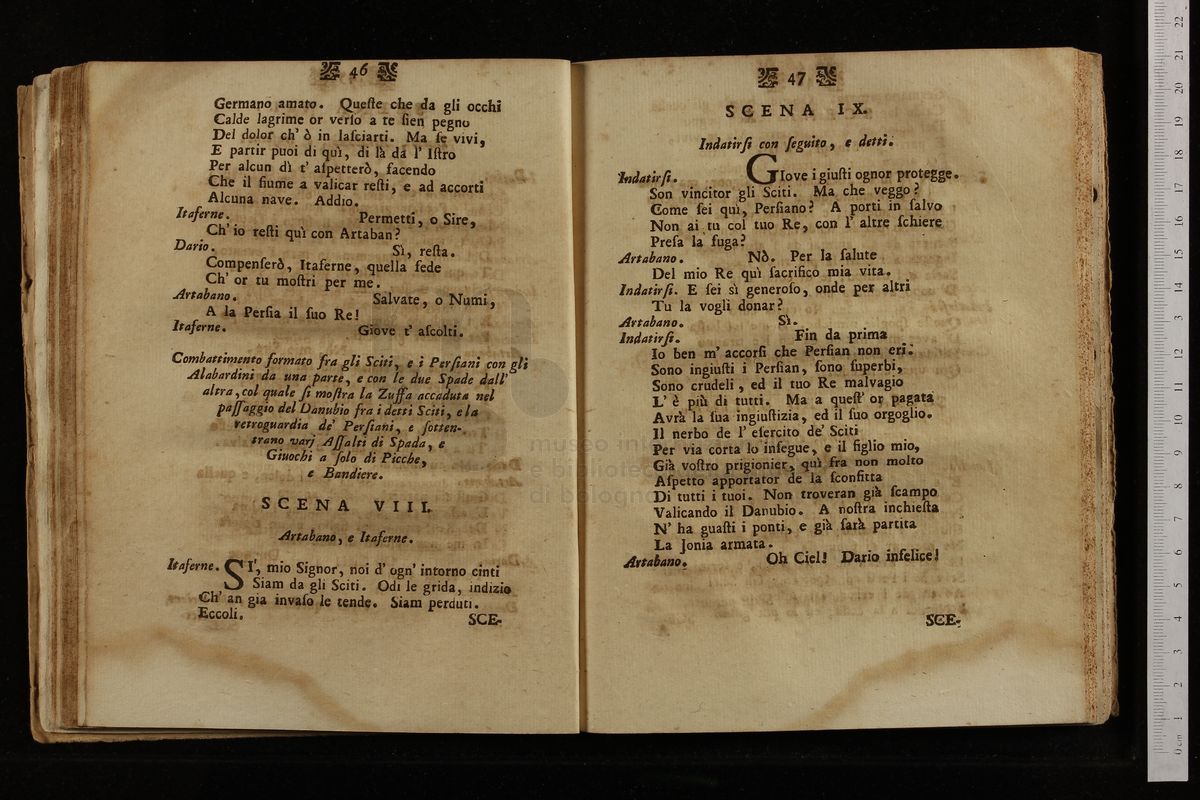 46
Germano amato. Queſte che da gli occhi
Calde lagrime or verſo a te ſien pegno
Del dolor ch' ò in laſciarti. Ma ſe vivi,
E partir puoi di quì, di là da l' Iſtro
Per alcun dì t' aſpetterò, facendo
Che il fiume a valicar reſti, e ad accorti
Alcuna nave. Addio.
Itaferne. Permetti, o Sire,
Ch' io reſti quì con Artaban?
Dario. Sì, reſta.
Compenſerò, Itaferne, quella fede
Ch' or tu moſtri per me.
Artabano. Salvate, o Numi,
A la Perſia il ſuo Re!
Itaferne. Giove t' aſcolti.
Combattimento formato fra gli Sciti, e i Perſiani con gli
Alabardini da una parte, e con le due Spade dall'
altra, col quale ſi moſtra la Zuffa accaduta nel
paſſaggio del Danubio fra i detti Sciti, e la
retroguardia de' Perſiani, e ſotten-
trano varj Aſſalti di Spada, e
Giuochi a ſolo di Picche,
e Bandiere.
SCENA VIII.
Artabano, e Itaferne.
Itaferne. SI', mio Signor, noi d' ogn' intorno cinti
Siam da gli Sciti. Odi le grida, indizio
Ch' an gia invaſo le tende. Siam perduti.
Eccoli.
SCE-
47
SCENA IX.
Indatirſi con ſeguito, e detti.
Indatirſi. GIove i giuſti ognor protegge.
Son vincitor gli Sciti. Ma che veggo?
Come ſei quì, Perſiano? A porti in ſalvo
Non ai tu col tuo Re, con l' altre ſchiere
Preſa la fuga?
Artabano. Nò. Per la ſalute
Del mio Re quì ſacrifico mia vita.
Indatirſi. E ſei sì generoſo, onde per altri
Tu la vogli donar?
Artabano. Sì.
Indatirſi. Fin da prima
Io ben m' accorſi che Perſian non eri.
Sono ingiuſti i Perſian, ſono ſuperbi,
Sono crudeli, ed il tuo Re malvagio
L' è più di tutti. Ma a queſt' or pagata
Avrà la ſua ingiuſtizia, ed il ſuo orgoglio.
Il nerbo de l' eſercito de' Sciti
Per via corta lo inſegue, e il figlio mio,
Già voſtro prigionier, quì fra non molto
Aſpetto apportator de la ſconfitta
Di tutti i tuoi. Non troveran già ſcampo
Valicando il Danubio. A noſtra inchieſta
N' ha guaſti i ponti, e già ſarà partita
La Jonia armata.
Artabano. Oh Ciel! Dario infelice!
SCE-